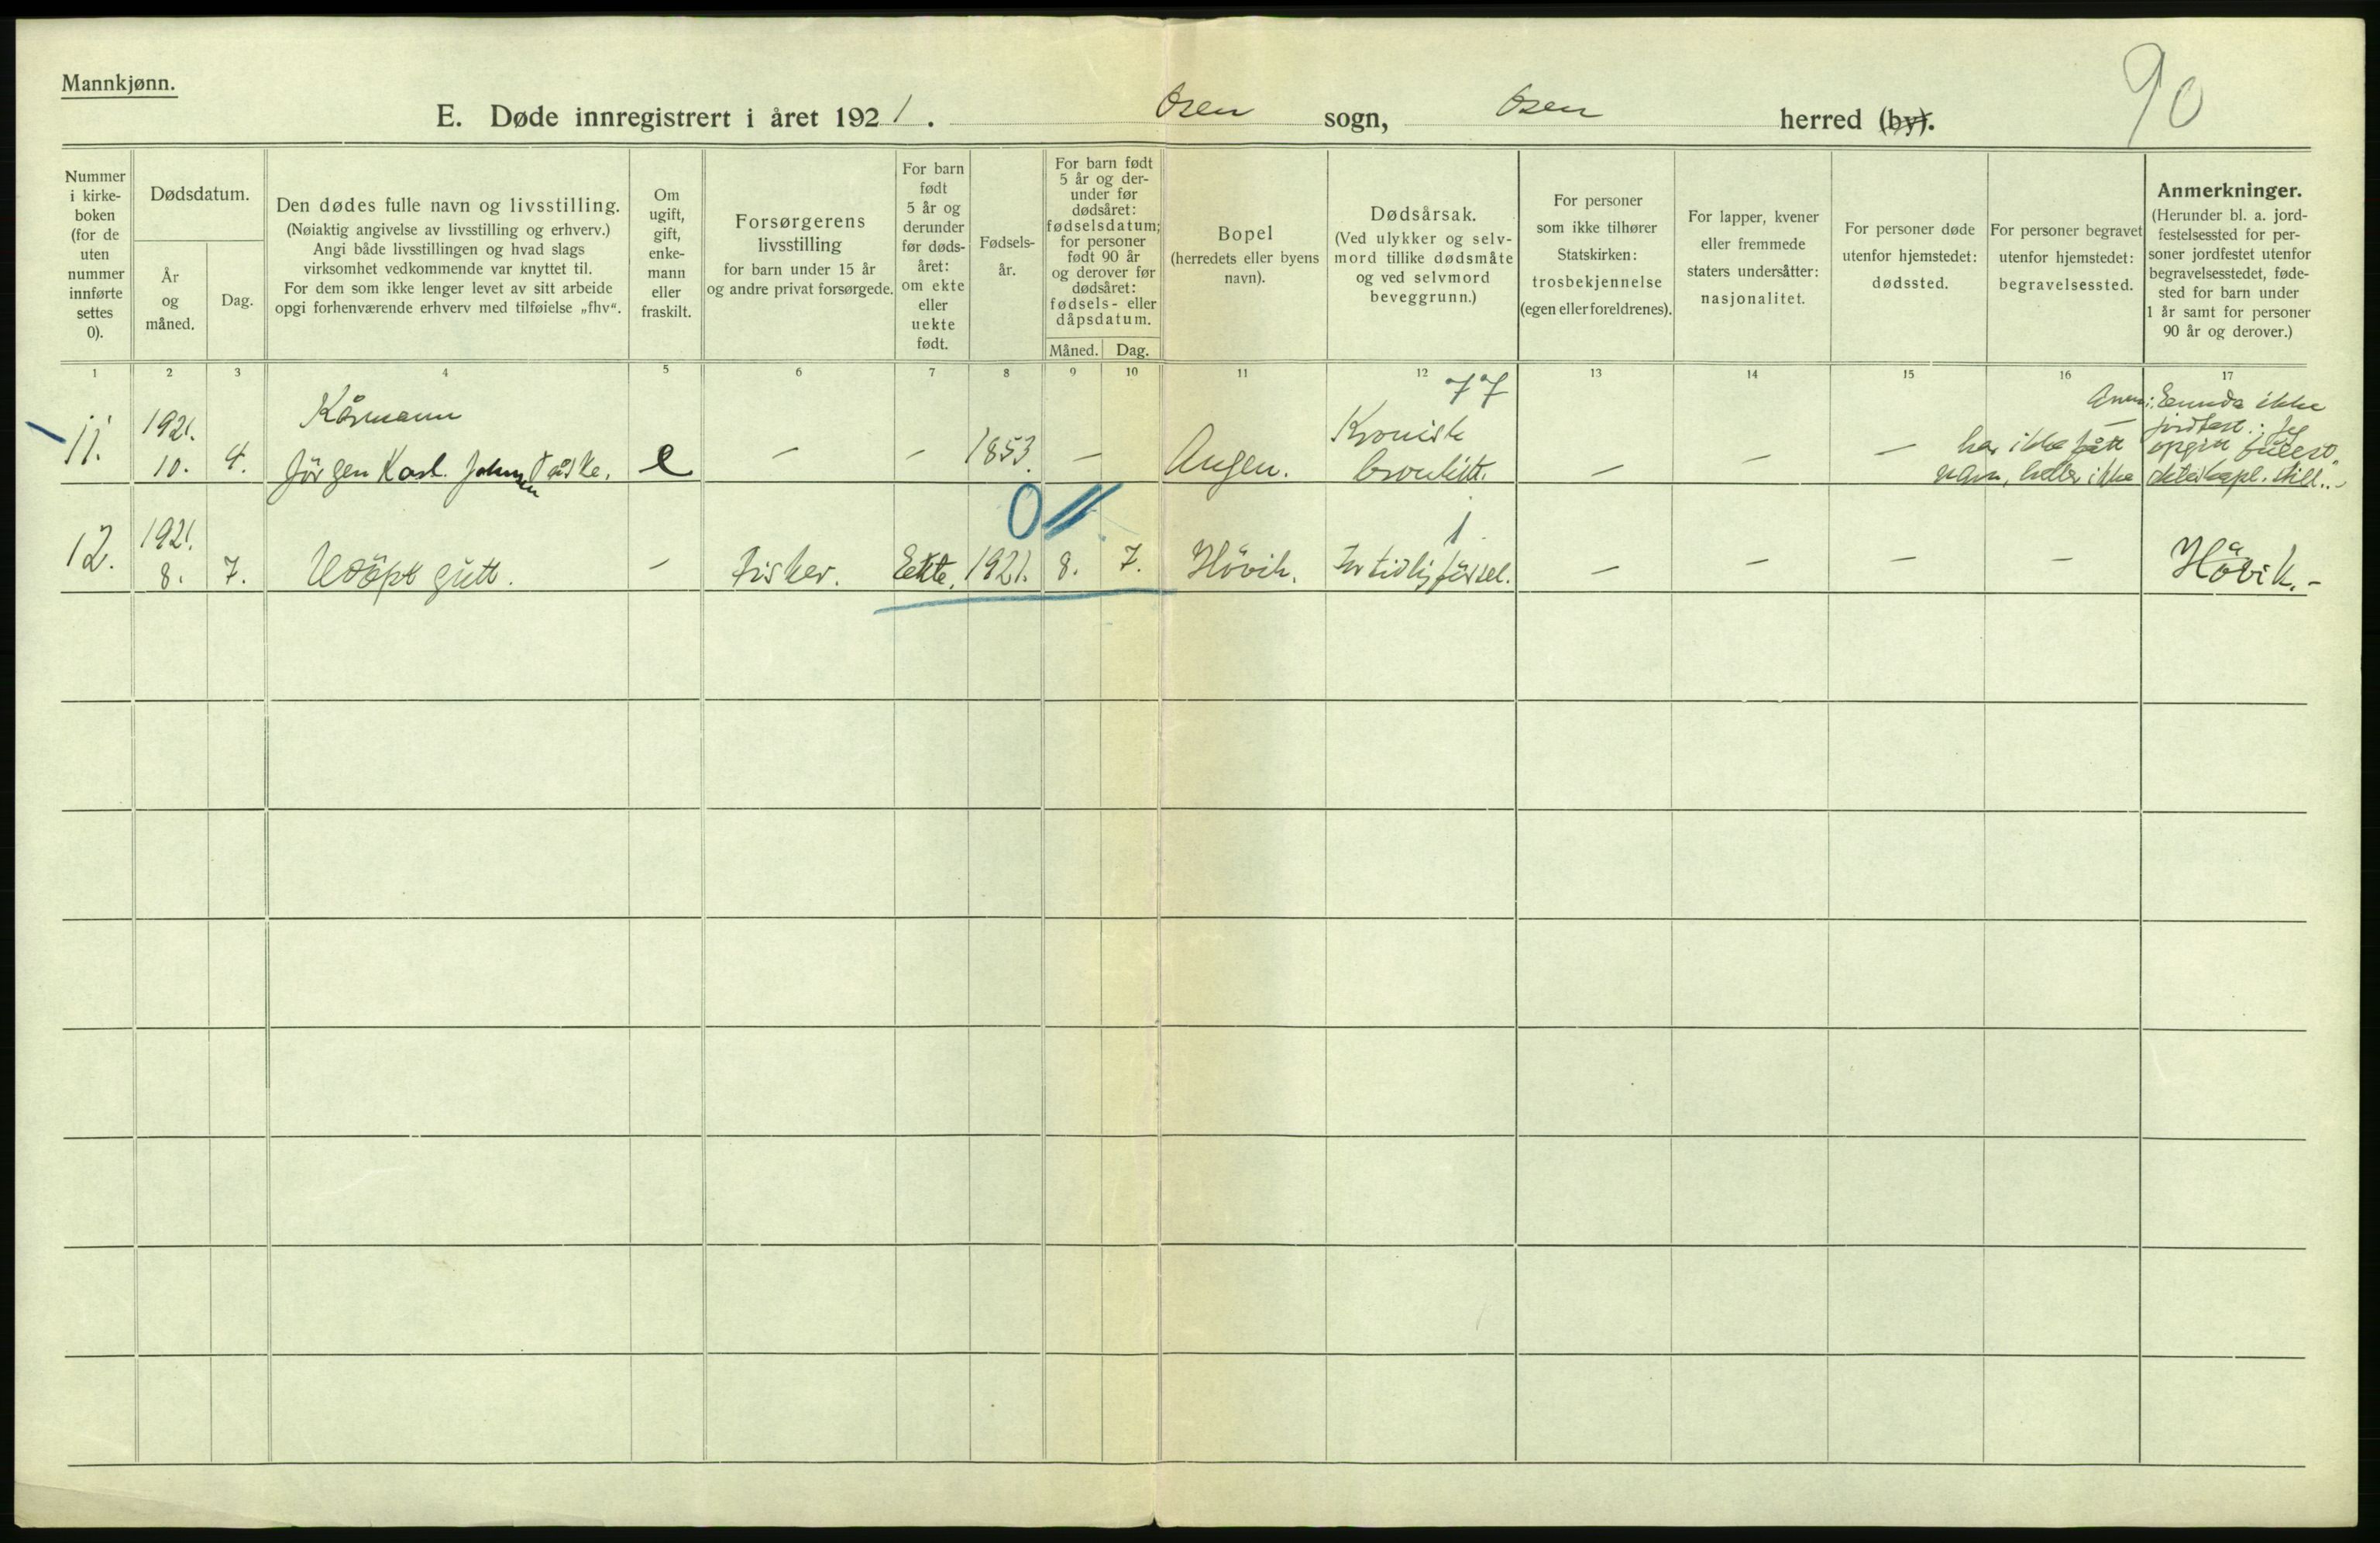 Mannkjønn.
90
E. Døde innregistrert i året 1921. Osen sogn, Osen herred (by).
Nummer
i kirke-
boken
(for de
uten
nummer
innførte
settes
0).
Dødsdatum.
År
og
måned.
Dag.
Den dødes fulle navn og livsstilling.
(Nøiaktig angivelse av livsstilling og erhverv.)
Angi både livsstillingen og hvad slags
virksomhet vedkommende var knyttet til.
For dem som ikke lenger levet av sitt arbeide
opgi forhenværende erhverv med tilføielse „fhv“.
Om
ugift,
gift,
enke-
mann
eller
fraskilt.
Forsørgerens
livsstilling
for barn under 15 år
og andre privat forsørgede.
For barn
født
5 år og
derunder
før døds-
året:
om ekte
eller
uekte
født.
Fødsels-
år.
For barn født
5 år og der-
under før
dødsåret:
fødselsdatum;
for personer
født 90 år
og derover før
dødsåret:
fødsels- eller
dåpsdatum.
Måned. Dag.
Bopel
(herredets eller byens
navn).
Dødsårsak.
(Ved ulykker og selv-
mord tillike dødsmåte
og ved selvmord
beveggrunn.)
For personer
som ikke tilhører
Statskirken:
trosbekjennelse
(egen eller foreldrenes).
For lapper, kvener
eller fremmede
staters undersåtter:
nasjonalitet.
For personer døde
utenfor hjemstedet:
dødssted.
For personer begravet
utenfor hjemstedet:
begravelsessted.
Anmerkninger.
(Herunder bl. a. jord-
festelsessted for per-
soner jordfestet utenfor
begravelsesstedet, føde-
sted for barn under
1 år samt for personer
90 år og derover.)
1 2 3 4 5 6 7 8 9 10 11 12 13 14 15 16 17
11.
1921.
10. 4.
Kårmann
Jörgen Karl. Johnsen
e
–
–
1853.
–
Angen.
77
Kronisk
bronkitt.
–
–
–
–
Anm: Ennda ikke
jordfest.: Jeg
har ikke fått opgitt
navn, heller ikke
0 //
12.
1921.
8. 7.
Udöpt gutt.
–
Fisker.
Ekte.
1921.
8. 7.
Hövik.
1
For tidlig född.
–
–
–
–
Hövik.-